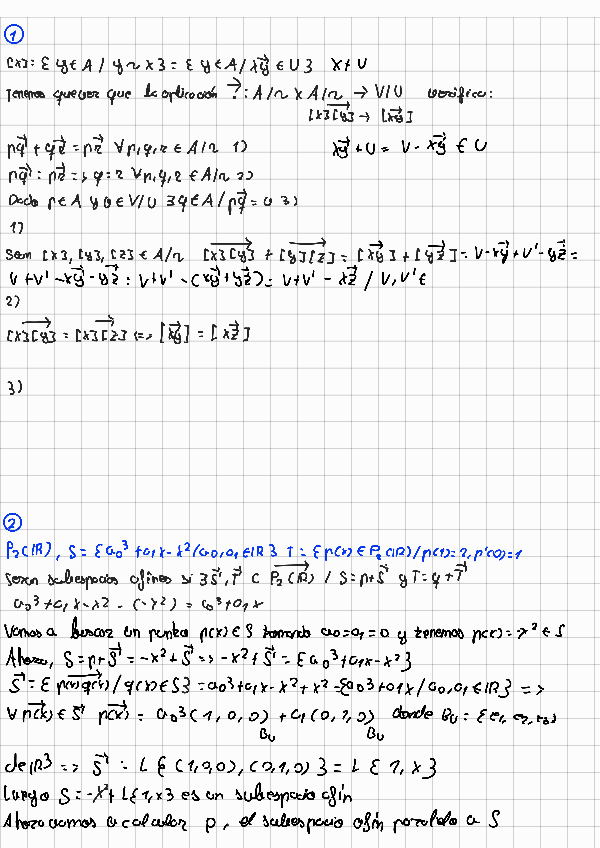 1
[x]= { y ∈ A / y ~ x } = { y ∈ A / xy⃗ ∈ U } x+U
Tenemos que ver que la aplicación ⃗ : A/~ x A/~ → V/U verifica:
[x][y]⃗ → [xy⃗]
pq⃗ + qz⃗ = pz⃗ ∀p,q,z ∈ A/~ 1) xy⃗ + U = V - xy⃗ ∈ U
pq⃗ = pz⃗ => q = z ∀p,q,z ∈ A/~ 2)
Dado p ∈ A y υ ∈ V/U ∃ q ∈ A / pq⃗ = υ 3)
1)
Sean [x], [y], [z] ∈ A/~ [x][y]⃗ + [y][z]⃗ = [xy⃗] + [yz⃗] = V - xy⃗ + V' - yz⃗ =
V + V' - xy⃗ - yz⃗ = V + V' - (xy⃗ + yz⃗) = V + V' - xz⃗ / V, V' ∈
2)
[x][y]⃗ = [x][z]⃗ <=> [xy⃗] = [xz⃗]
3)
2
P₂(IR), S = { a₀³ + a₁x - x² / a₀, a₁ ∈ IR } T = { p(x) ∈ P₂(IR) / p(1)=2, p'(0)=1
Seran subespacios afines si ∃ S⃗, T⃗ ⊂ P₂(IR)⃗ / S = p + S⃗ y T = q + T⃗
a₀³ + a₁x - x² - (-x²) = a₀³ + a₁x
Vamos a buscar un punto p(x) ∈ S tomando a₀ = a₁ = 0 y tenemos p(x) = -x² ∈ S
Ahora, S = p + S⃗ = -x² + S⃗ => -x² + S⃗ = { a₀³ + a₁x - x² }
S⃗ = { p(x)q(x)⃗ / q(x) ∈ S } = a₀³ + a₁x - x² + x² = { a₀³ + a₁x / a₀, a₁ ∈ IR } =>
∀ p(x)⃗ ∈ S⃗ p(x)⃗ = a₀³ (1, 0, 0) + a₁ (0, 1, 0) donde Bᵤ = { e₁, e₂, e₃ }
Bᵤ Bᵤ
de IR³ => S⃗ = L { (1,0,0), (0,1,0) } = L { 1, x }
Luego S = -x² + L { 1, x } es un subespacio afín
Ahora vamos a calcular p, el subespacio afín paralelo a S